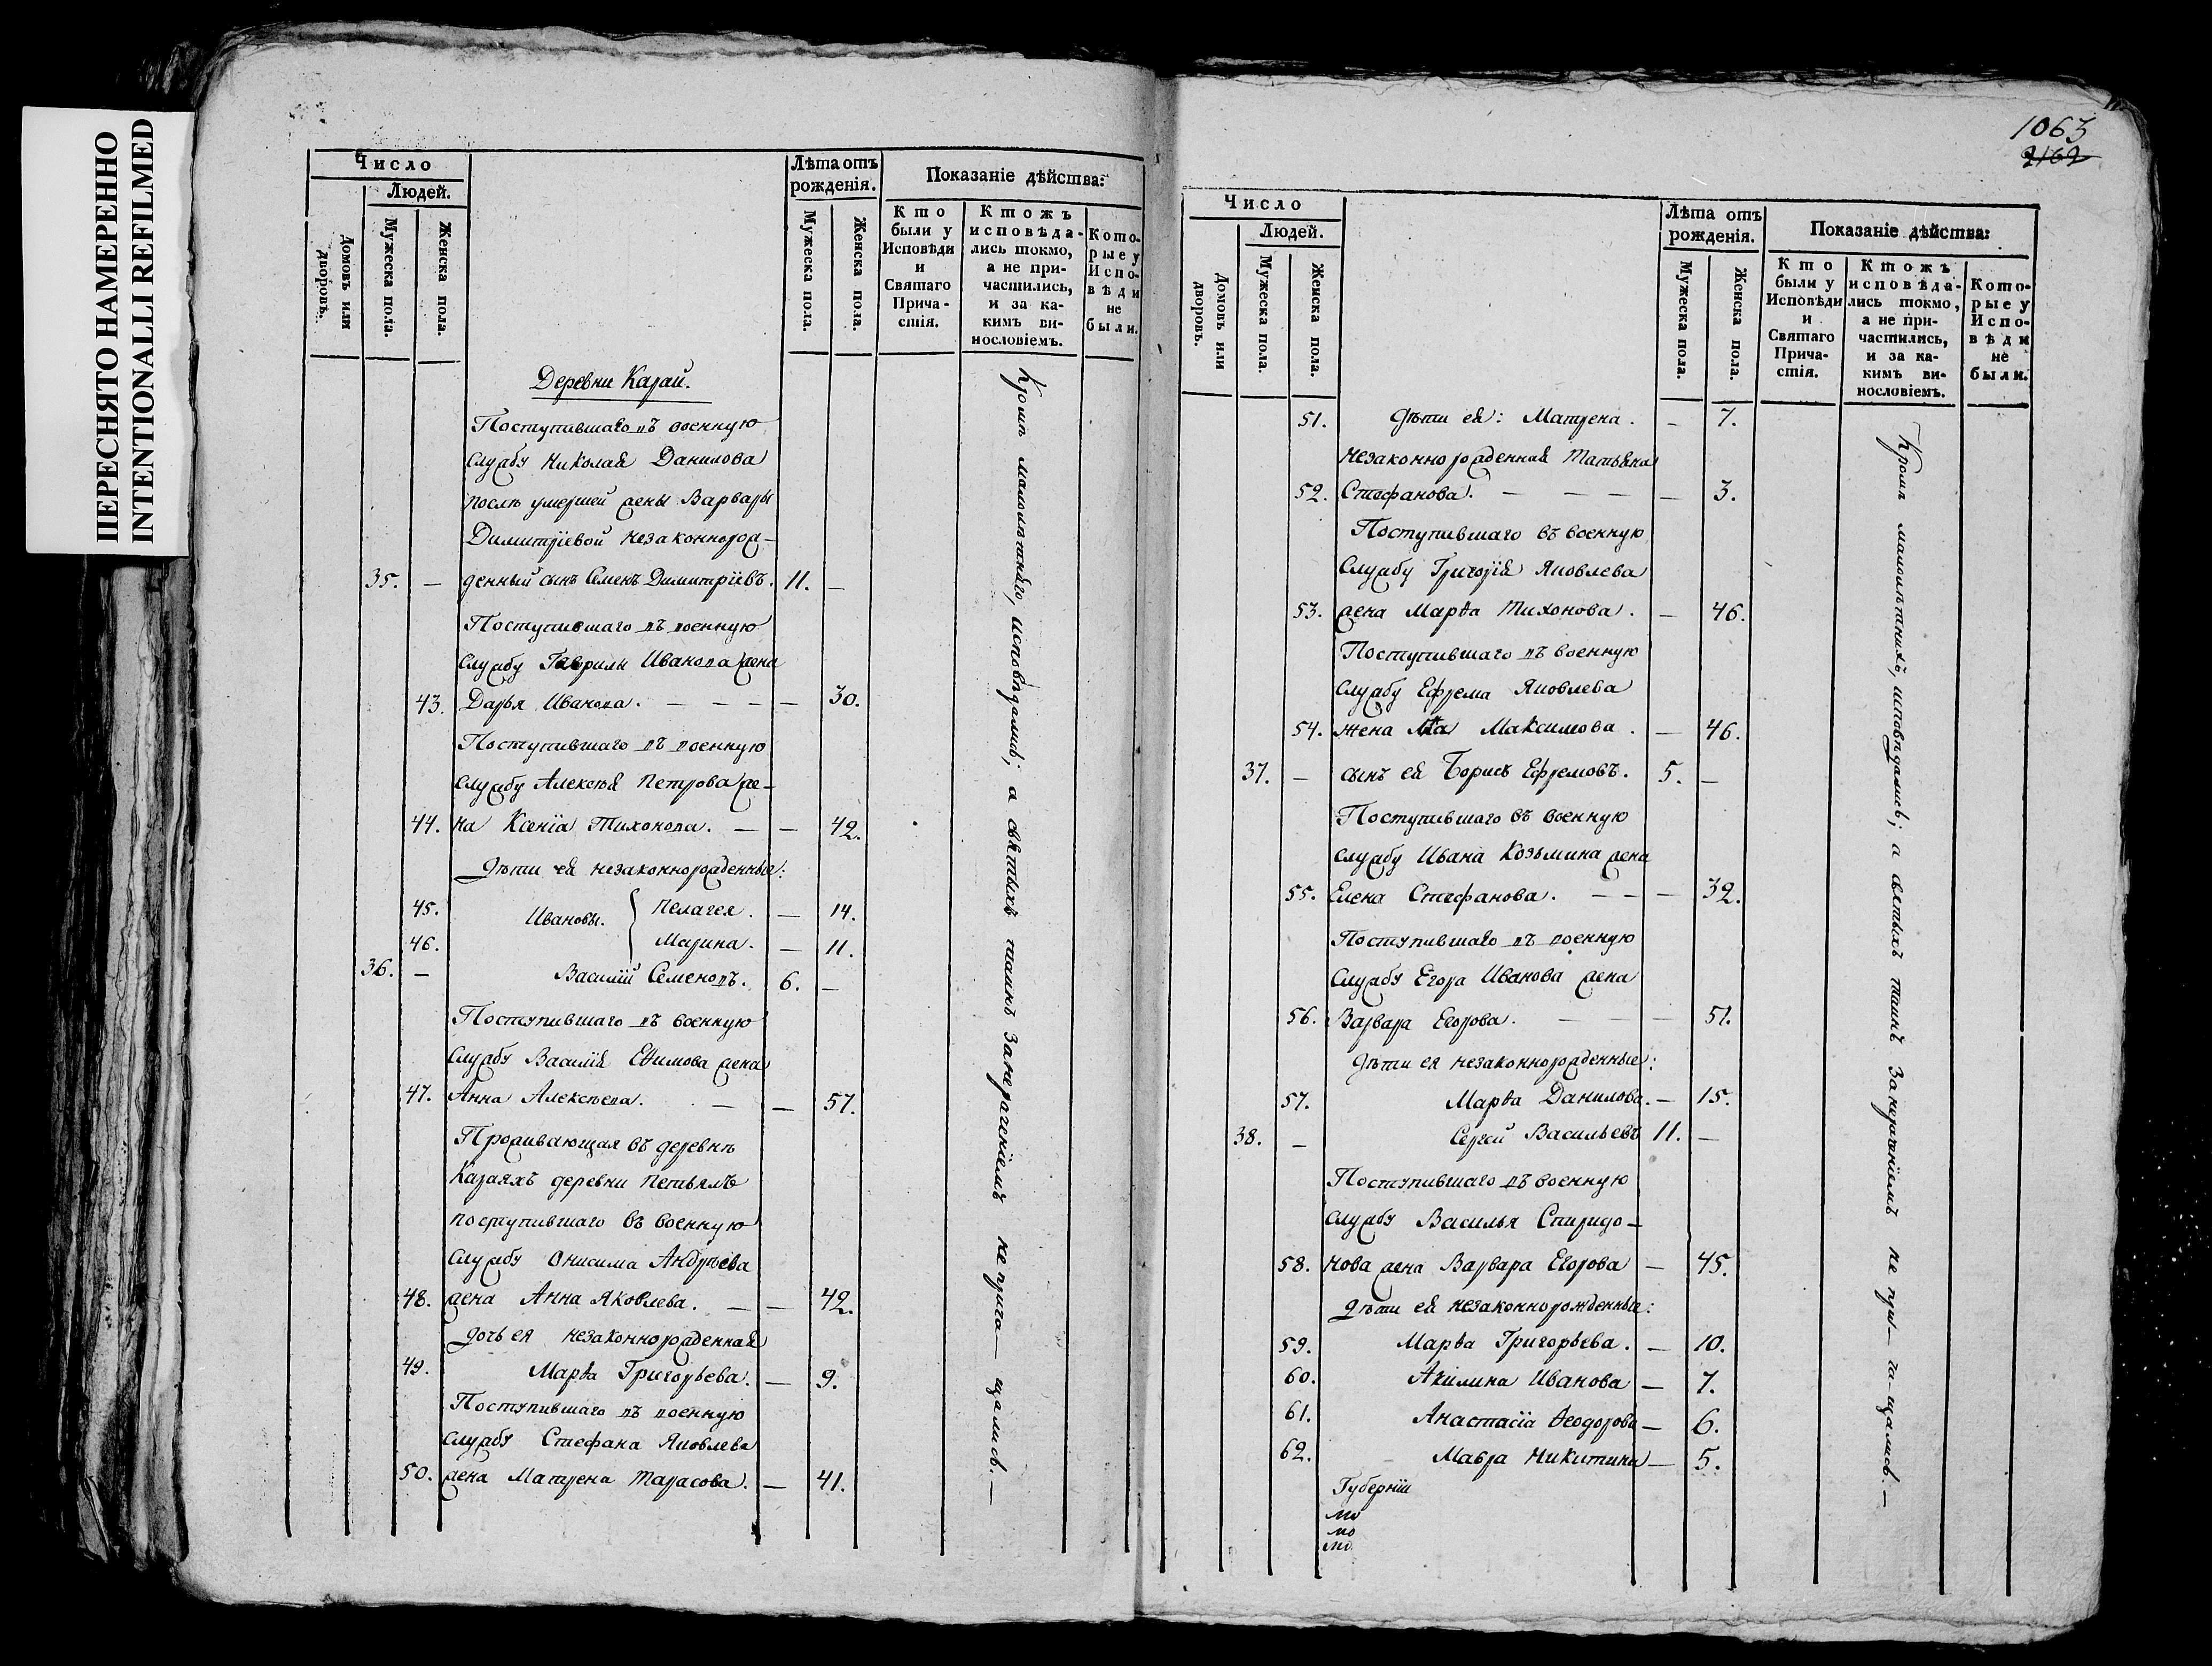 ПЕРЕСНЯТО НАМЕРЕННО
INTENTIONALLI REFILMED
Число
Людей.
Домовъ или дворовъ.
Мужеска пола.
Женска пола.
Лѣта отъ рожденія.
Мужеска пола.
Женска пола.
Показаніе дѣйства:
Кто были у Исповѣди и Святаго Прича-стія.
Ктожъ исповѣда-лись токмо, а не при-частились, и за ка-кимъ ви-нословіемъ.
Кото-рые у Испо-вѣди не были.
Деревни Казаи.
Поступившаго въ военную
службу Николая Данилова
послѣ умершей жены Варвары
Димитріевой незаконнорож-
35. — денный сынъ Семенъ Димитріевъ. 11. —
Поступившаго въ военную
службу Гаврилы Иванова жена
43. Дарья Иванова. — — — — 30.
Поступившаго въ военную
службу Алексѣя Петрова же-
44. на Ксенія Тихонова. — — 42.
Дѣти ея незаконнорожденные:
45. Ивановы. { Пелагея. — 14.
46. Марина. — 11.
36. — Василій Семеновъ. 6. —
Поступившаго въ военную
службу Василія Еѳимова жена
47. Анна Алексѣева. — — 57.
Проживающая въ деревнѣ
Казаяхъ деревни Петьялъ
поступившаго въ военную
службу Онисима Андрѣева
48. жена Анна Яковлева. — — 42.
дочь ея незаконнорожденная
49. Марѳа Григорьева. — 9.
Поступившаго въ военную
службу Стефана Яковлева
50. жена Матрена Тарасова. — 41.
Кромѣ малолѣтняго, исповѣдались; а святыхъ таинъ за нераченіемъ не прича— щались. —
1063
2162
Число
Людей.
Домовъ или дворовъ.
Мужеска пола.
Женска пола.
Лѣта отъ рожденія.
Мужеска пола.
Женска пола.
Показаніе дѣйства:
Кто были у Исповѣди и Святаго Прича-стія.
Ктожъ исповѣда-лись токмо, а не при-частились, и за ка-кимъ ви-нословіемъ.
Кото-рые у Испо-вѣди не были.
51. Дѣти ея: Матрена. — 7.
незаконнорожденная Татьяна
52. Стефанова. — — — — 3.
Поступившаго въ военную
службу Григорія Яковлева
53. жена Марѳа Тихонова. — 46.
Поступившаго въ военную
службу Ефрема Яковлева
54. жена Максимова. — 46.
37. — сынъ ея Борисъ Ефремовъ. 5. —
Поступившаго въ военную
службу Ивана Козьмина жена
55. Елена Стефанова. — — — 32.
Поступившаго въ военную
службу Егора Иванова жена
56. Варвара Егорова. — — — 51.
Дѣти ея незаконнорожденные:
57. Марѳа Данилова. — 15.
38. — Сергей Васильевъ 11. —
Поступившаго въ военную
службу Василья Спиридо-
58. нова жена Варвара Егорова — 45.
Дѣти ея незаконнорожденные:
59. Марѳа Григорьева. — 10.
60. Акилина Иванова — 7.
61. Анастасія Ѳеодорова — 6.
62. Мавра Никитина — 5.
Губерніи
Кромѣ малолѣтнихъ, исповѣдались; а святыхъ таинъ за нераченіемъ не при—ча—щались. —